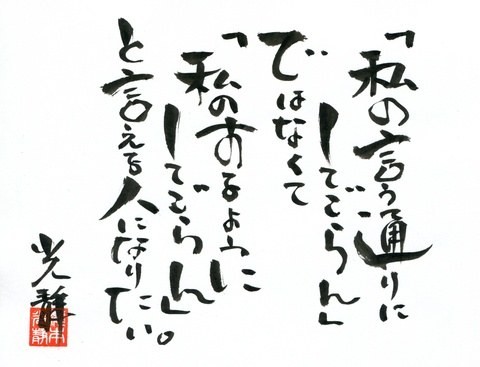 「私の言う通りに
してごらん」
ではなくて
「私のするように
してごらん」。
と言える人になりたい。
光静